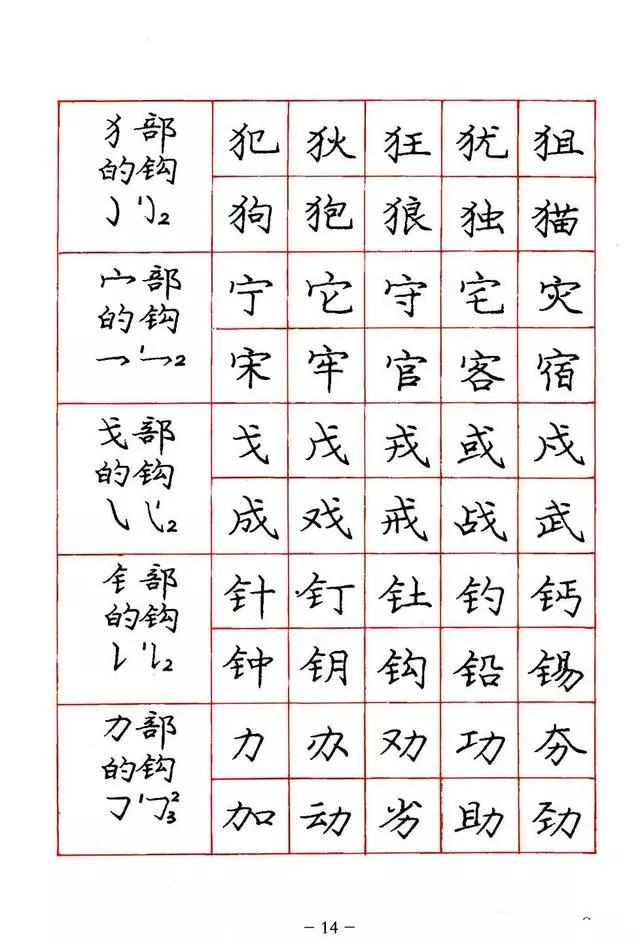 犭部
的钩
犯 狄 狂 犹 狙
狗 狍 狼 独 猫
宀部
的钩
宁 它 守 宅 灾
宋 牢 官 客 宿
戈部
的钩
戈 戊 戎 或 戍
成 戏 戒 战 武
钅部
的钩
针 钉 钍 钓 钙
钟 钥 钩 铅 锡
力部
的钩
力 办 劝 功 夯
加 动 劣 助 劲
– 14 –